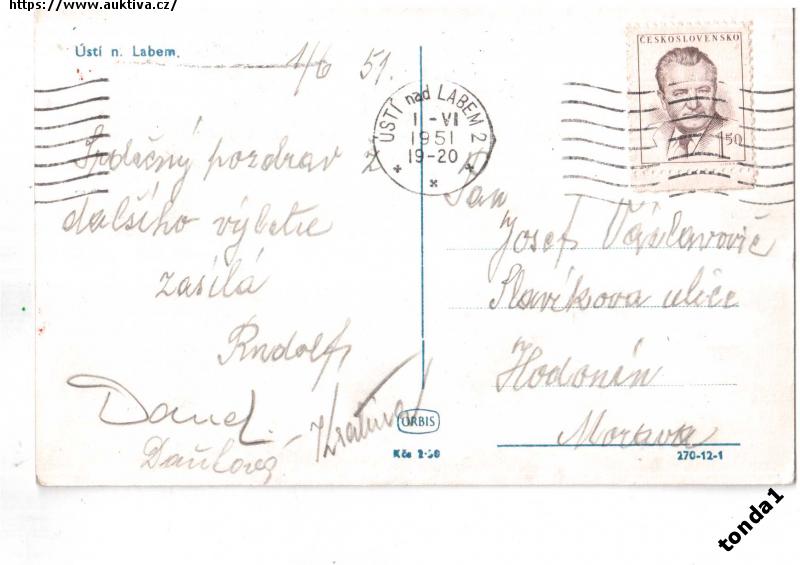 https://www.auktiva.cz/
Ústí n. Labem.
1/6 51.
ČESKOSLOVENSKO
1.50
ÚSTÍ nad LABEM 2
1 -VI
1951
19-20
Srdečný pozdrav z
dalšího výletu
zasílá
Rudolf
Pan
Josef Václavovič
Slavíkova ulice
Hodonín
Morava
ORBIS
Kčs 2·50
270-12-1
tonda1